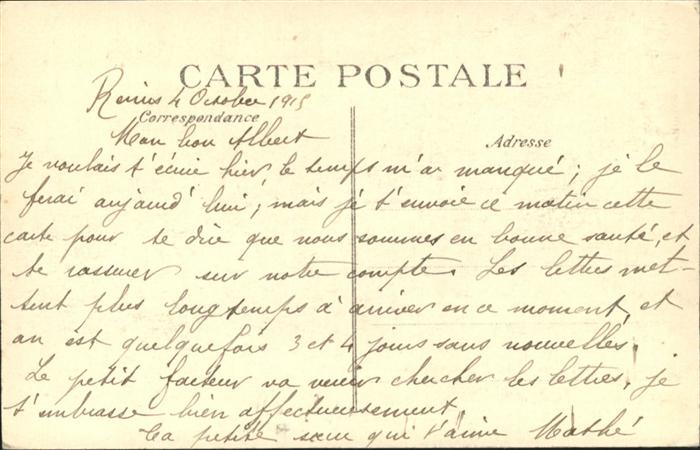 CARTE POSTALE
Reims 4 October 1915
Correspondance
Mon bon Albert
Adresse
Je voulais t'écrire hier le temps m'a manqué; je le
ferai aujourd'hui; mais je t'envoie ce matin cette
carte pour te dire que nous sommes en bonne santé, et
te rassurer sur notre compte. Les lettres met-
tent plus longtemps à arriver en ce moment, et
on est quelquefois 3 et 4 jours sans nouvelles.
Le petit facteur va venir chercher les lettres, je
t'embrasse bien affectueusement
Ta petite sœur qui t'aime